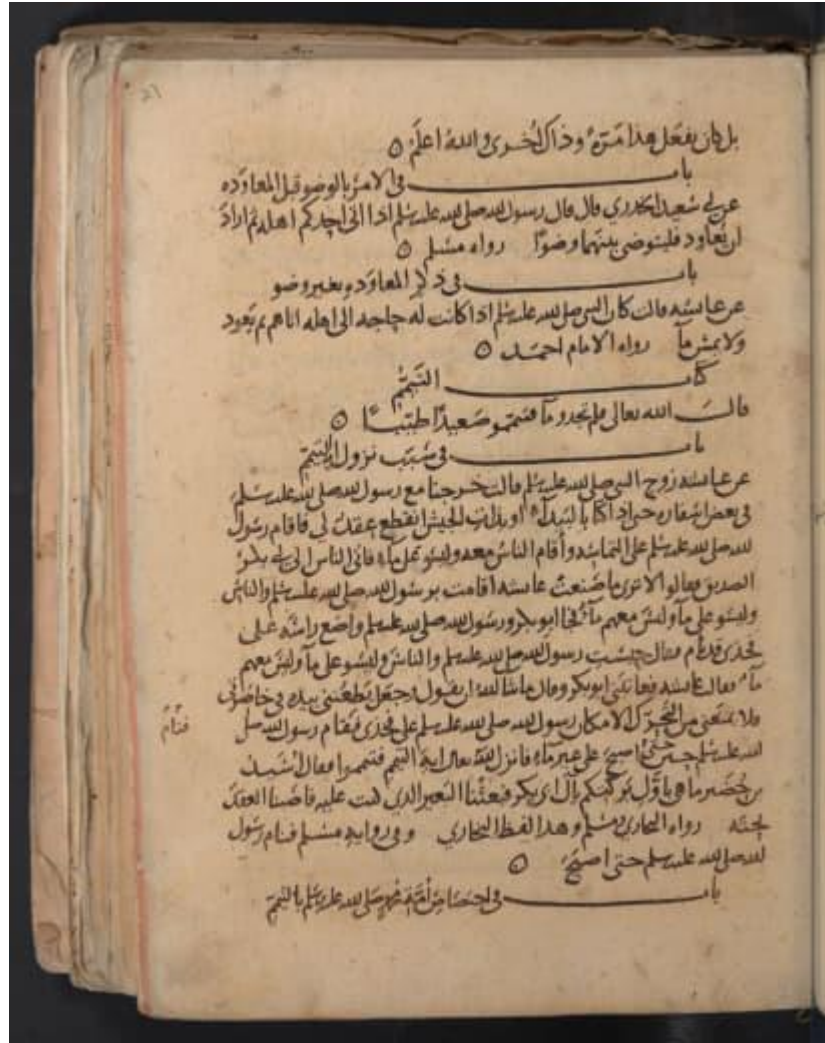 ٢٦
بل كان يفعل هذا مرة وذاك أخرى والله اعلم ٥
باب في الامر بالوضو قبل المعاوده
عن ابي سعيد الخدري قال قال رسول الله صلى الله عليه وسلم اذا اتى احدكم اهله ثم اراد
ان يعاود فليتوضى بينهما وضوًا رواه مسلم ٥
باب في ذكر المعاوده بغير وضو
عن عائشه قالت كان النبي صلى الله عليه وسلم اذا كانت له حاجه الى اهله اتاهم ثم يعود
ولا يمس مآ رواه الامام احمد ٥
كتاب التيمم
قال الله تعالى فلم تجدو مآ فتيممو صعيدًا طيبًا ٥
باب في سبب نزول اية التيمم
عن عائشه زوج النبي صلى الله عليه وسلم قالت خرجنا مع رسول الله صلى الله عليه وسلم
في بعض اسفاره حتى اذا كنا بالبيدآء او بذات الجيش انقطع عقد لي فاقام رسول
الله صلى الله عليه وسلم على التماسه وأقام الناس معه وليسو على مآء فاتى الناس الى ابي بكر
الصديق فقالوا الا ترى ما صنعت عائشه اقامت برسول الله صلى الله عليه وسلم والناس
وليسو على مآ وليس معهم مآ فجا ابو بكر ورسول الله صلى الله عليه وسلم واضع راسه على
فخذى قد نام فقال حبست رسول الله صلى الله عليه وسلم والناس وليسو على مآ وليس معهم
مآء فقالت عائشه فعاتبني ابو بكر وقال ما شا الله ان يقول وجعل يطعنني بيده في خاصرتي
فلا يمنعني من التحرك الا مكان رسول الله صلى الله عليه وسلم على فخذى فقام رسول الله صلى
فنام
الله عليه وسلم حين حتى اصبح على غير مآء فانزل الله تعالى اية التيمم فتيمموا فقال أسيد
بن حضير ما هي باول بركتكم يآل ابي بكر فبعثنا البعير الذي كنت عليه فاصبنا العقد
تحته رواه البخاري ومسلم وهذا لفظ البخاري وفي رواية مسلم فنام رسول
الله صلى الله عليه وسلم حتى اصبح ٥
باب في اختصاص أمة محمد صلى الله عليه وسلم بالتيمم